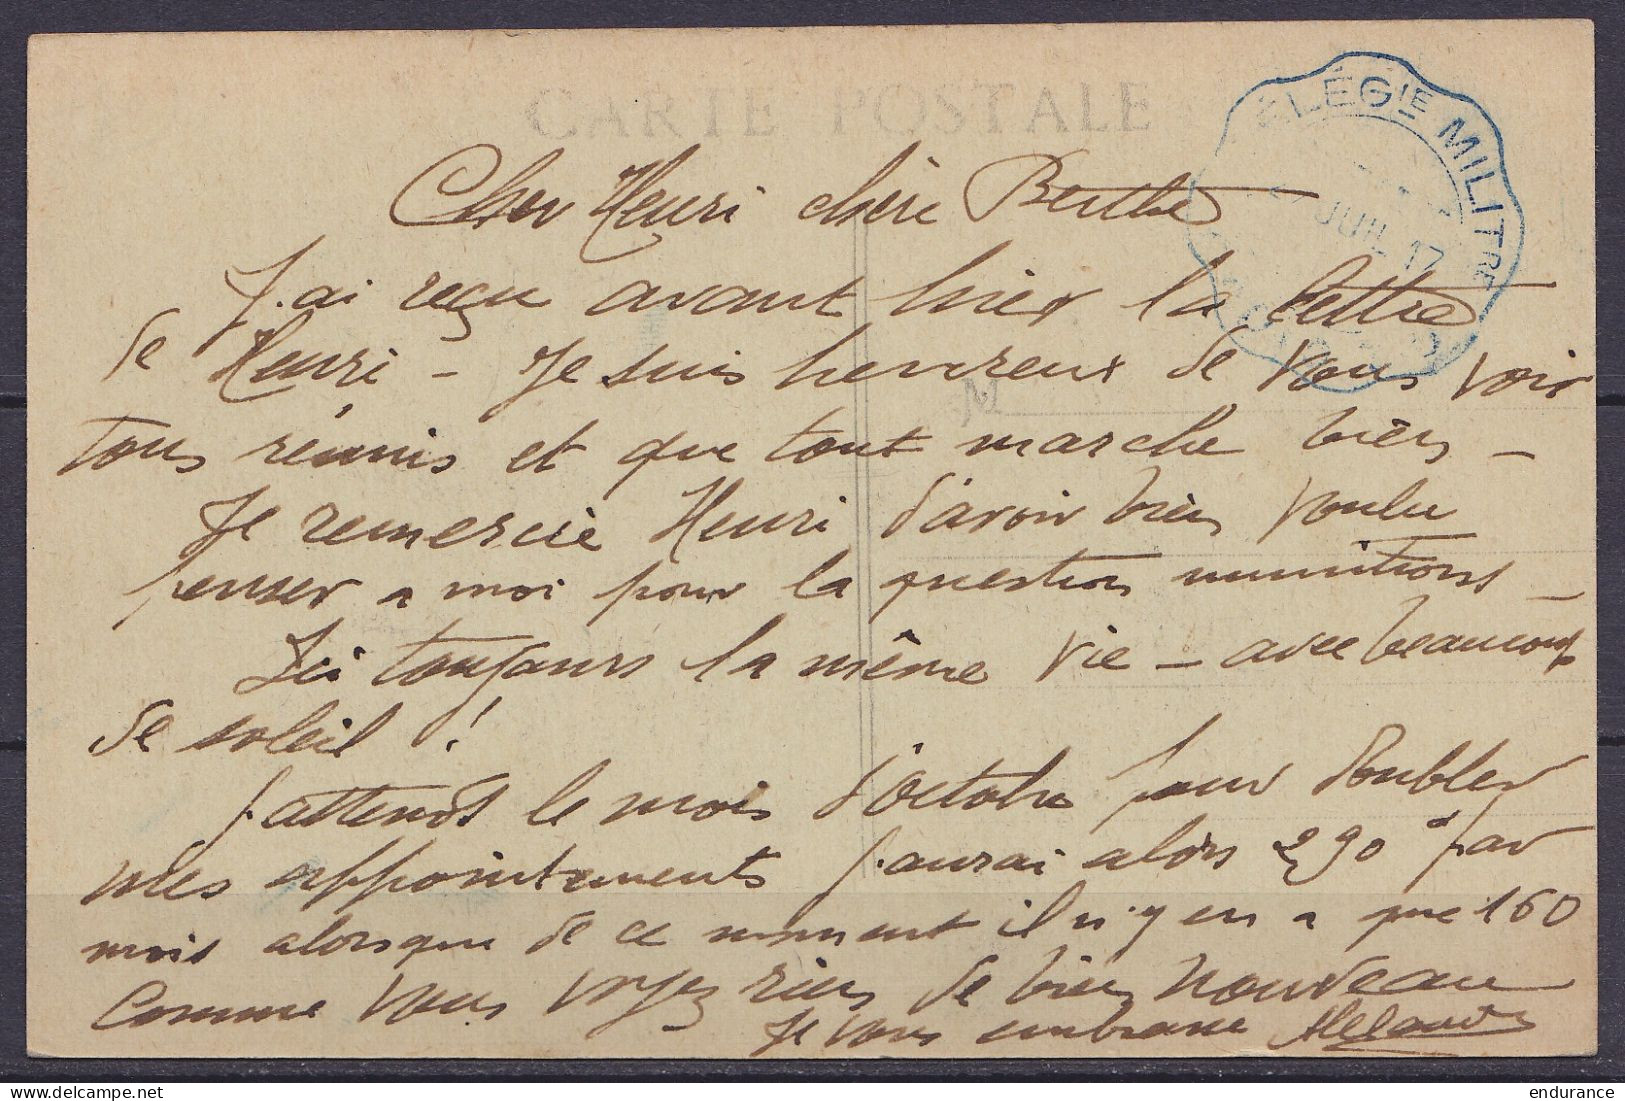 CARTE POSTALE
TÉLÉGIE MILITRE
JUIL 17
Cher Henri chère Berthe
J'ai reçu avant hier la lettre
de Henri - Je suis heureux de vous voir
tous réunis et que tout marche bien -
Je remercie Henri d'avoir bien voulu
penser a moi pour la question munitions -
Ici toujours la même vie - avec beaucoup
de soleil !
J'attends le mois d'octobre pour doubler
mes appointements j'aurai alors 290 par
mois alors que de ce moment il n'y en a que 160
Comme vous voyez rien de bien nouveau
Je vous embrasse
endurance